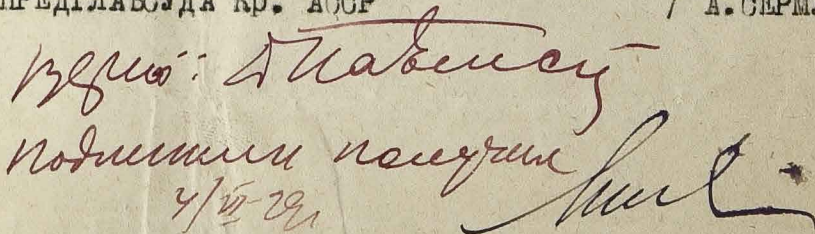 ПРЕДГЛАВСУДА Кр. АССР / А.СЕРМ
верно:
Подлинник получил
4/VI-29г